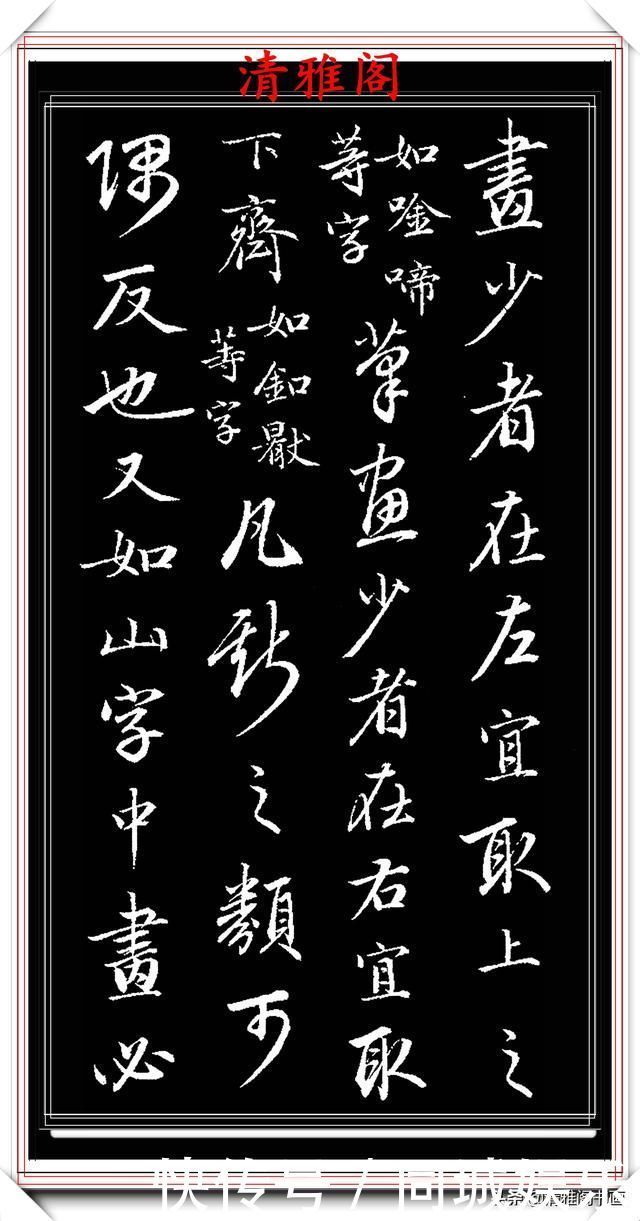 清雅阁
畫少者在左宜取上之
如唫啼
等字
筆畫少者在右宜取
下齊
如釦
等字
凡斯之類可
隅反也又如山字中畫必
快传号/同城娱乐
头条@清雅阁书画